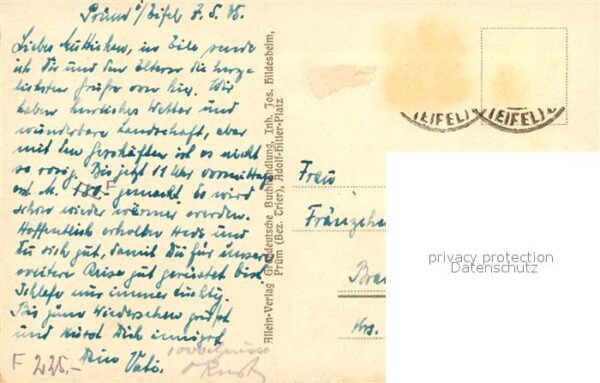 Prüm i/Eifel 7.5.35.
Liebes Muttichen, in Eile sende
ich Dir und den Eltern die herz-
lichsten Grüße von hier. Wir
haben herrliches Wetter und
wunderbare Landschaft, aber
mit den Geschäften ist es nicht
so rosig. Bis jetzt 11 Uhr vormittags
erst M. gemacht. Es wird
schon wieder wärmer werden.
Hoffentlich erholten Hede und
Du sich gut, damit Du für unsere
weitere Reise gut gerüstet bist.
Schlafe nur immer tüchtig.
Bis zum Wiedersehen grüßt
und küsst Dich innigst
Dein Vati.
F 225.-
Allein-Verlag Großdeutsche Buchhandlung, Inh. Jos. Hildesheim,
Prüm (Bez. Trier), Adolf-Hitler-Platz
(EIFEL)
(EIFEL)
Frau
Fränzche
Bra
Krs.
privacy protection
Datenschutz